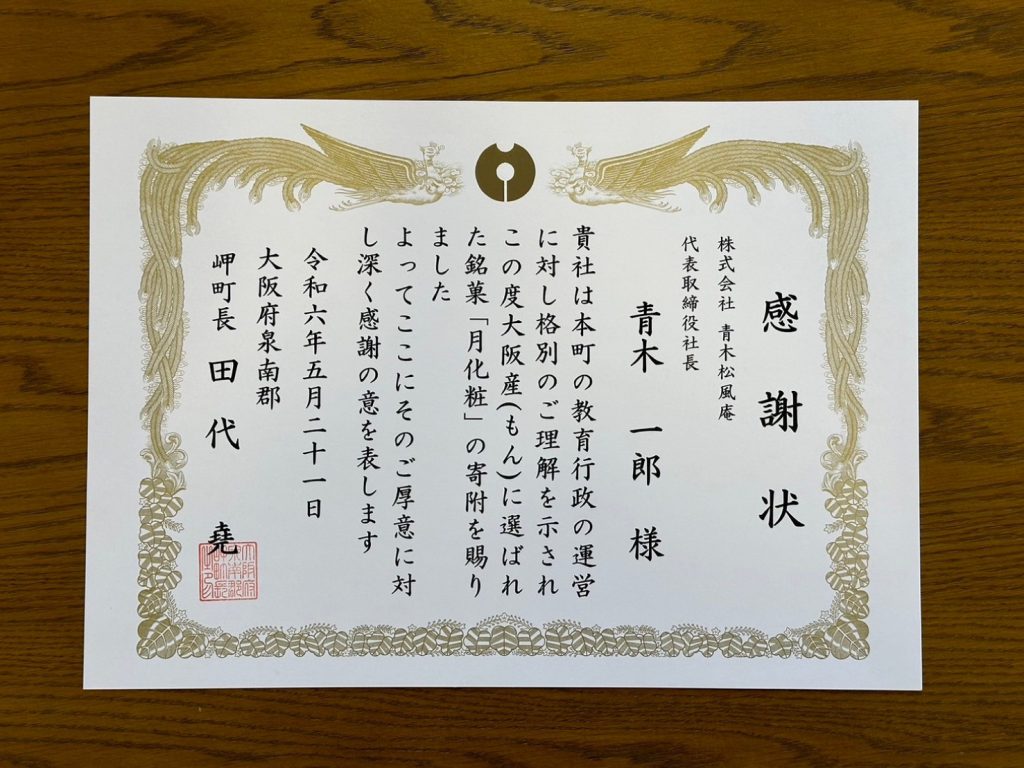 感謝状
株式会社 青木松風庵
代表取締役社長
青木 一郎 様
貴社は本町の教育行政の運営
に対し格別のご理解を示され
この度大阪産(もん)に選ばれ
た銘菓「月化粧」の寄附を賜り
ました
よってここにそのご厚意に対
し深く感謝の意を表します
令和六年五月二十一日
大阪府泉南郡
岬町長 田代 堯